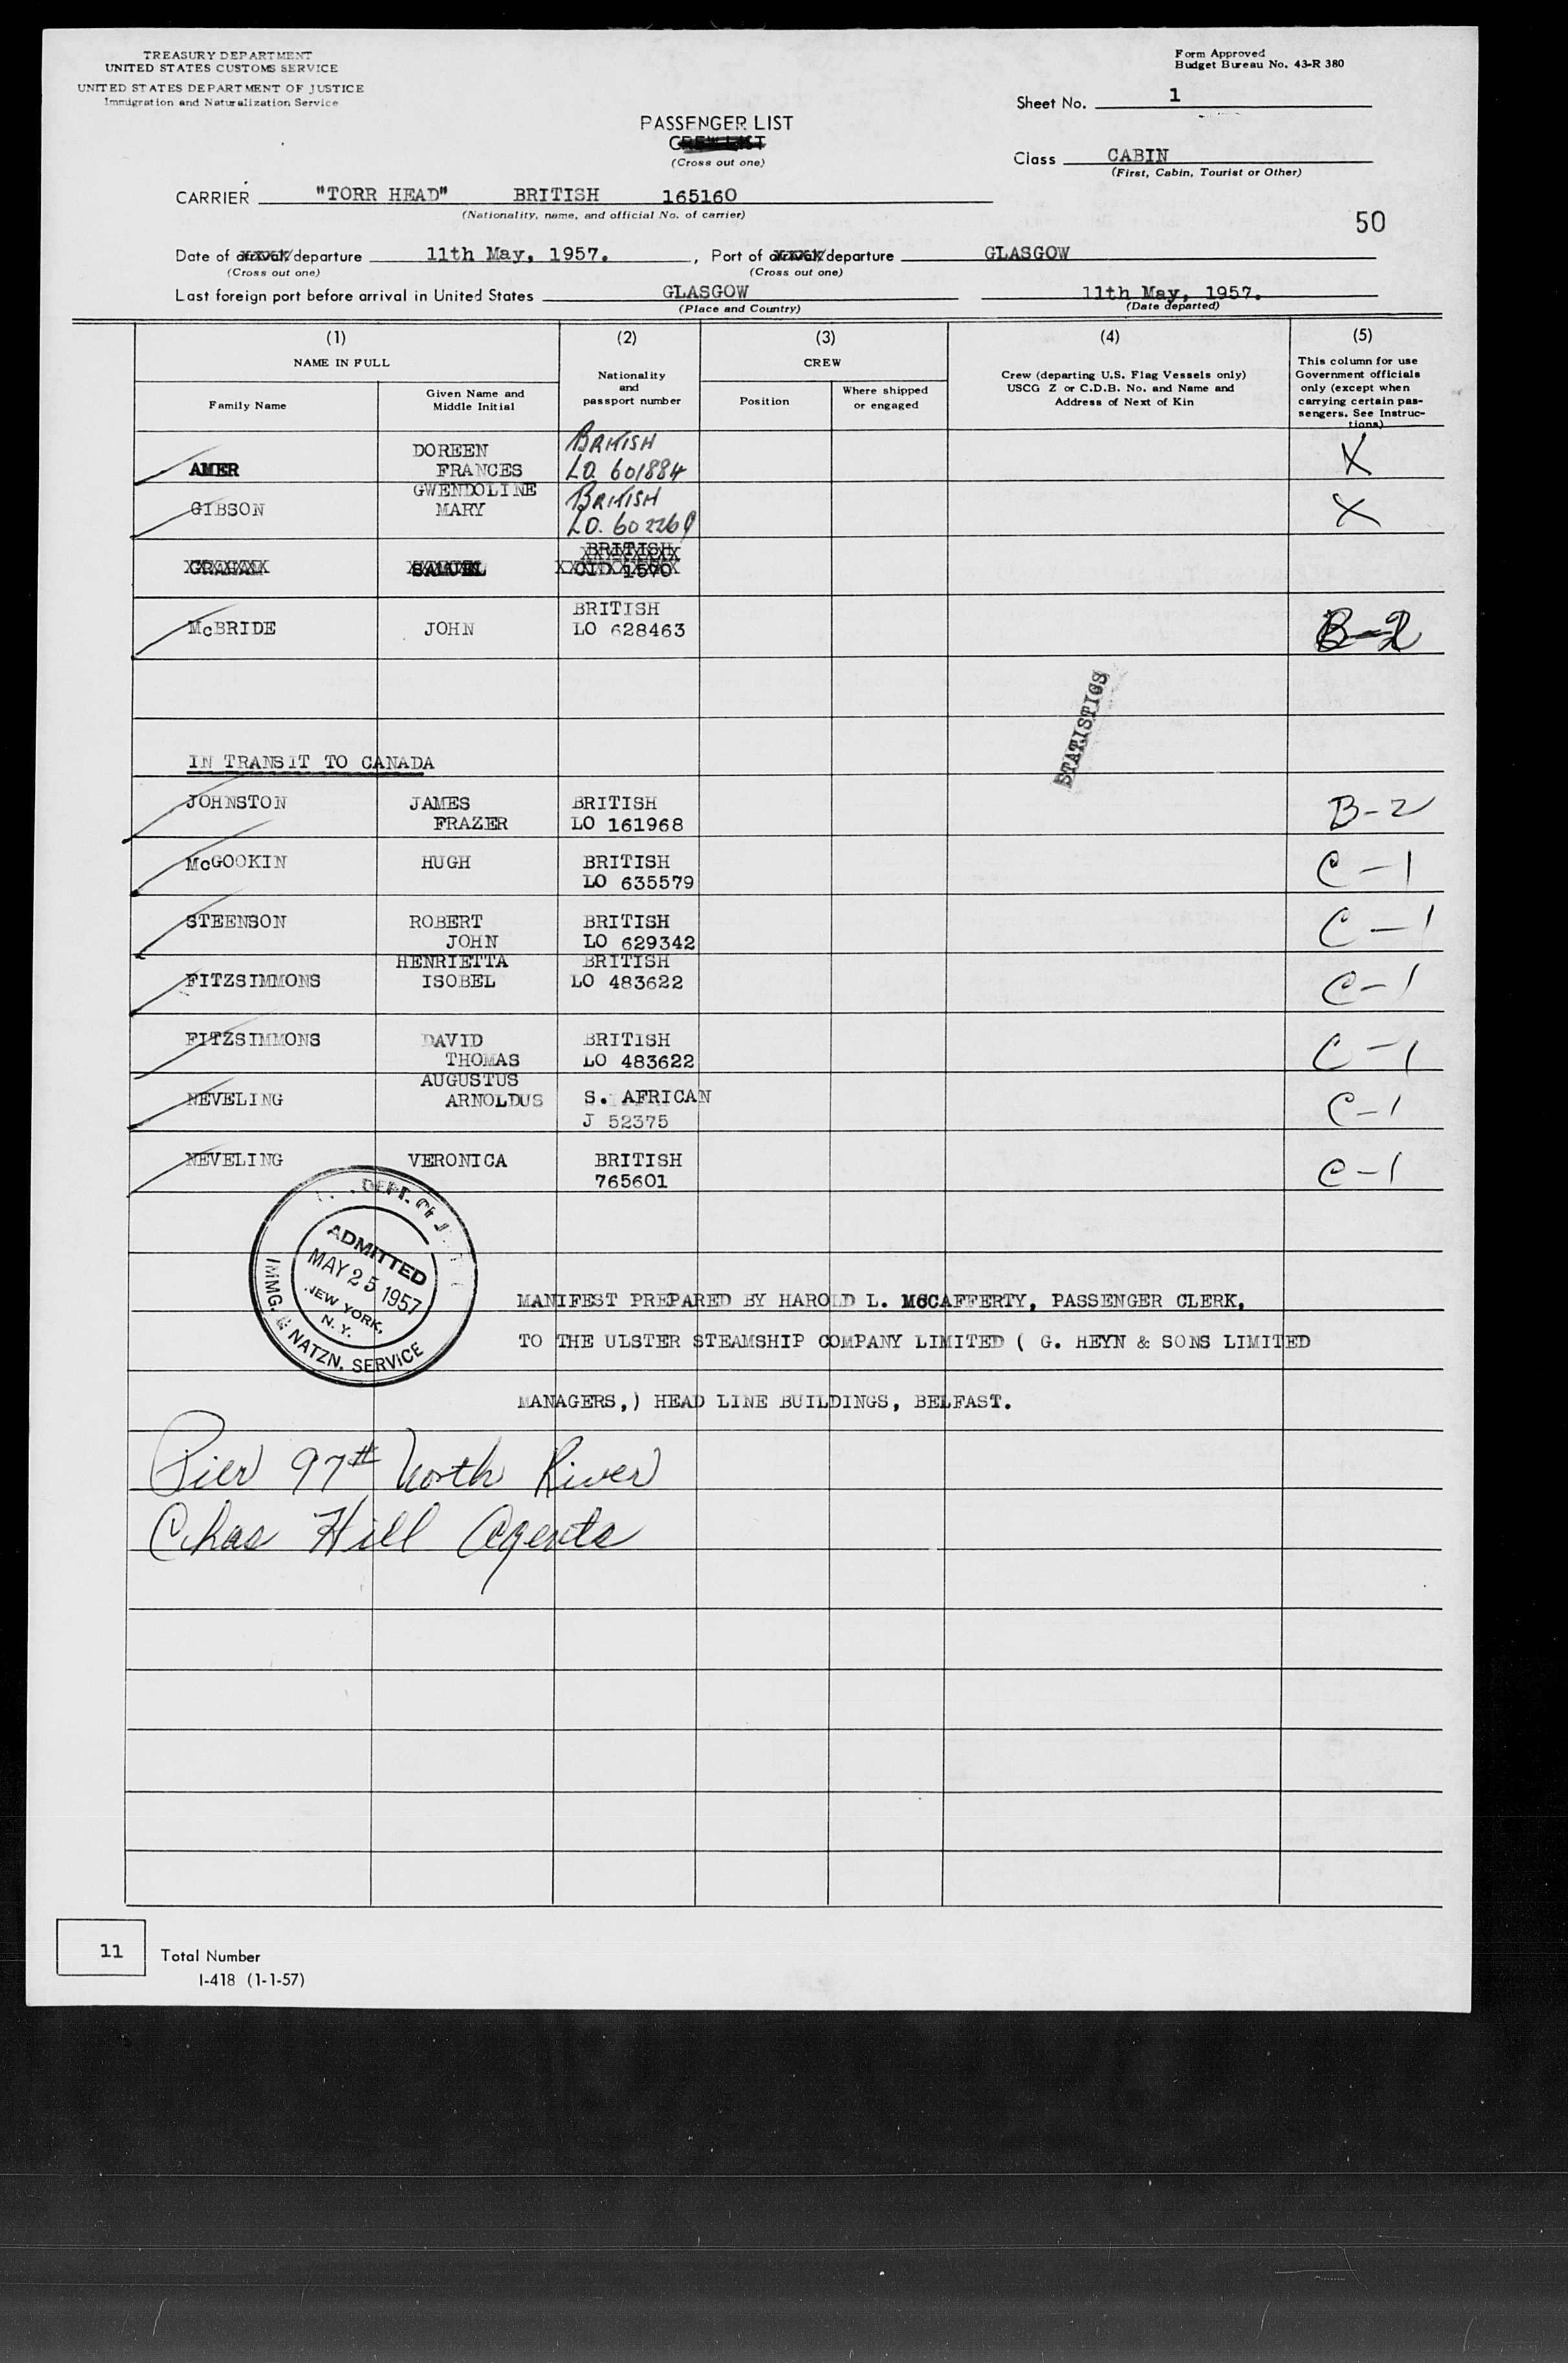 TREASURY DEPARTMENT
UNITED STATES CUSTOMS SERVICE
UNITED STATES DEPARTMENT OF JUSTICE
Immigration and Naturalization Service
Form Approved
Budget Bureau No. 43-R 380
Sheet No. 1
PASSENGER LIST
CREW LIST
(Cross out one)
Class CABIN
(First, Cabin, Tourist or Other)
CARRIER "TORR HEAD" BRITISH 165160
(Nationality, name, and official No. of carrier)
50
Date of arrival/departure 11th May, 1957. , Port of arrival/departure GLASGOW
(Cross out one) (Cross out one)
Last foreign port before arrival in United States GLASGOW 11th May, 1957.
(Place and Country) (Date departed)
(1) (2) (3) (4) (5)
NAME IN FULL Nationality and passport number CREW Crew (departing U.S. Flag Vessels only) USCG Z or C.D.B. No. and Name and Address of Next of Kin This column for use Government officials only (except when carrying certain passengers. See Instructions)
Family Name Given Name and Middle Initial Position Where shipped or engaged
AMER DOREEN FRANCES BRITISH LO. 601884 X
GIBSON GWENDOLINE MARY BRITISH LO. 602269 X
GRAHAM SAMUEL BRITISH 1570
McBRIDE JOHN BRITISH LO 628463 B-2
STATISTICS
IN TRANSIT TO CANADA
JOHNSTON JAMES FRAZER BRITISH LO 161968 B-2
McGOOKIN HUGH BRITISH LO 635579 C-1
STEENSON ROBERT JOHN BRITISH LO 629342 C-1
FITZSIMMONS HENRIETTA ISOBEL BRITISH LO 483622 C-1
FITZSIMMONS DAVID THOMAS BRITISH LO 483622 C-1
NEVELING AUGUSTUS ARNOLDUS S. AFRICAN J 52375 C-1
NEVELING VERONICA BRITISH 765601 C-1
DEPT. OF
ADMITTED
MAY 25 1957
NEW YORK,
N. Y.
IMMG. & NATZN. SERVICE
MANIFEST PREPARED BY HAROLD L. McCAFFERTY, PASSENGER CLERK,
TO THE ULSTER STEAMSHIP COMPANY LIMITED ( G. HEYN & SONS LIMITED
MANAGERS,) HEAD LINE BUILDINGS, BELFAST.
Pier 97th North River
Chas Hill Agents
11 Total Number
I-418 (1-1-57)